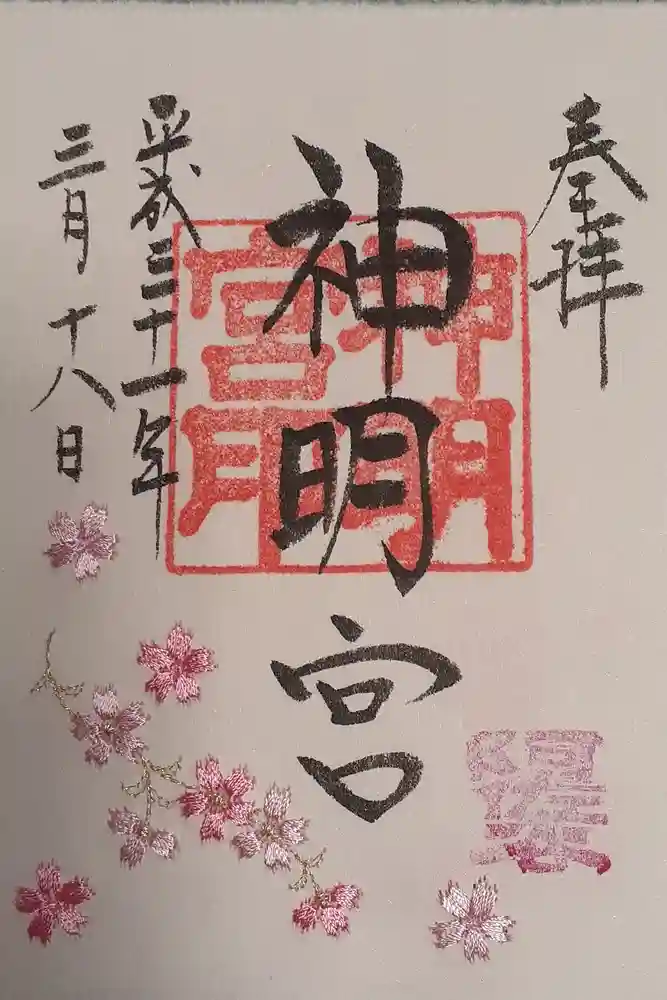 奉拝
神明宮
神明宮印
平成三十一年
三月十八日